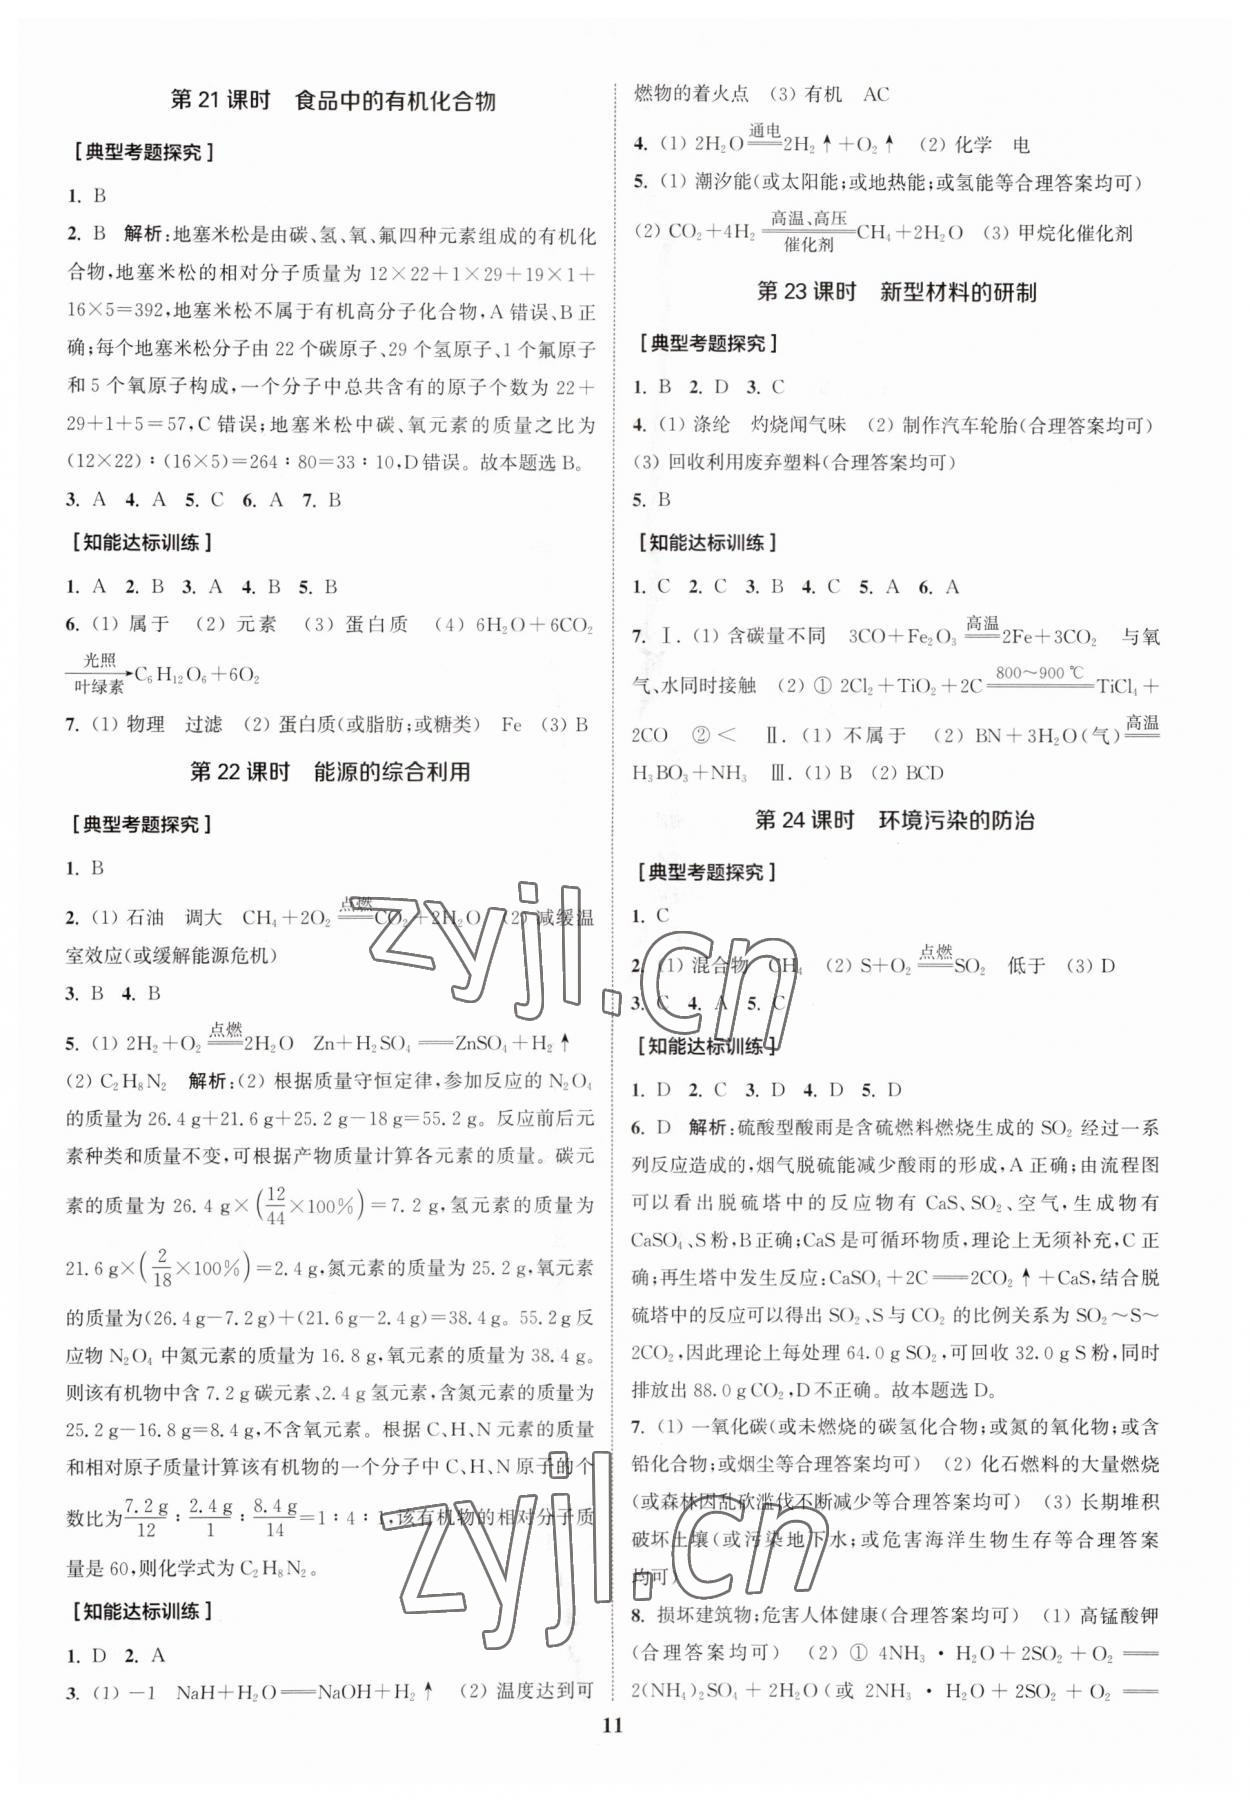 第21课时 食品中的有机化合物
[典型考题探究]
1. B
2. B 解析:地塞米松是由碳、氢、氧、氟四种元素组成的有机化
合物,地塞米松的相对分子质量为12×22+1×29+19×1+
16×5=392,地塞米松不属于有机高分子化合物,A错误、B正
确;每个地塞米松分子由22个碳原子、29个氢原子、1个氟原子
和5个氧原子构成,一个分子中总共含有的原子个数为22+
29+1+5=57,C错误;地塞米松中碳、氧元素的质量之比为
(12×22)∶(16×5)=264∶80=33∶10,D错误。故本题选B。
3. A 4. A 5. C 6. A 7. B
[知能达标训练]
1. A 2. B 3. A 4. B 5. B
6. (1) 属于 (2) 元素 (3) 蛋白质 (4) 6H₂O+6CO₂
光照
叶绿素
→C₆H₁₂O₆+6O₂
7. (1) 物理 过滤 (2) 蛋白质(或脂肪;或糖类) Fe (3) B
第22课时 能源的综合利用
[典型考题探究]
1. B
2. (1) 石油 调大 CH₄+2O₂ 点燃══ CO₂+2H₂O (2) 减缓温
室效应(或缓解能源危机)
3. B 4. B
5. (1) 2H₂+O₂ 点燃══ 2H₂O Zn+H₂SO₄══ZnSO₄+H₂↑
(2) C₂H₈N₂ 解析:(2) 根据质量守恒定律,参加反应的N₂O₄
的质量为26.4 g+21.6 g+25.2 g-18 g=55.2 g。反应前后元
素种类和质量不变,可根据产物质量计算各元素的质量。碳元
素的质量为26.4 g×(12/44×100%)=7.2 g,氢元素的质量为
21.6 g×(2/18×100%)=2.4 g,氮元素的质量为25.2 g,氧元素
的质量为(26.4 g-7.2 g)+(21.6 g-2.4 g)=38.4 g。55.2 g反
应物N₂O₄中氮元素的质量为16.8 g,氧元素的质量为38.4 g。
则该有机物中含7.2 g碳元素、2.4 g氢元素,含氮元素的质量为
25.2 g-16.8 g=8.4 g,不含氧元素。根据C、H、N元素的质量
和相对原子质量计算该有机物的一个分子中C、H、N原子的个
数比为7.2 g/12∶2.4 g/1∶8.4 g/14=1∶4∶1,该有机物的相对分子质
量是60,则化学式为C₂H₈N₂。
[知能达标训练]
1. D 2. A
3. (1) -1 NaH+H₂O══NaOH+H₂↑ (2) 温度达到可
燃物的着火点 (3) 有机 AC
4. (1) 2H₂O 通电══ 2H₂↑+O₂↑ (2) 化学 电
5. (1) 潮汐能(或太阳能;或地热能;或氢能等合理答案均可)
(2) CO₂+4H₂ 高温、高压══催化剂 CH₄+2H₂O (3) 甲烷化催化剂
第23课时 新型材料的研制
[典型考题探究]
1. B 2. D 3. C
4. (1) 涤纶 灼烧闻气味 (2) 制作汽车轮胎(合理答案均可)
(3) 回收利用废弃塑料(合理答案均可)
5. B
[知能达标训练]
1. C 2. C 3. B 4. C 5. A 6. A
7. Ⅰ. (1) 含碳量不同 3CO+Fe₂O₃ 高温══ 2Fe+3CO₂ 与氧
气、水同时接触 (2) ① 2Cl₂+TiO₂+2C 800~900 ℃══ TiCl₄+
2CO ② < Ⅱ. (1) 不属于 (2) BN+3H₂O(气) 高温══
H₃BO₃+NH₃ Ⅲ. (1) B (2) BCD
第24课时 环境污染的防治
[典型考题探究]
1. C
2. (1) 混合物 CH₄ (2) S+O₂ 点燃══ SO₂ 低于 (3) D
3. C 4. A 5. C
[知能达标训练]
1. D 2. C 3. D 4. D 5. D
6. D 解析:硫酸型酸雨是含硫燃料燃烧生成的SO₂经过一系
列反应造成的,烟气脱硫能减少酸雨的形成,A正确;由流程图
可以看出脱硫塔中的反应物有CaS、SO₂、空气,生成物有
CaSO₄、S粉,B正确;CaS是可循环物质,理论上无须补充,C正
确;再生塔中发生反应:CaSO₄+2C══2CO₂↑+CaS,结合脱
硫塔中的反应可以得出SO₂、S与CO₂的比例关系为SO₂~S~
2CO₂,因此理论上每处理64.0 g SO₂,可回收32.0 g S粉,同时
排放出88.0 g CO₂,D不正确。故本题选D。
7. (1) 一氧化碳(或未燃烧的碳氢化合物;或氮的氧化物;或含
铅化合物;或烟尘等合理答案均可) (2) 化石燃料的大量燃烧
(或森林因乱砍滥伐不断减少等合理答案均可) (3) 长期堆积
破坏土壤(或污染地下水;或危害海洋生物生存等合理答案
均可)
8. 损坏建筑物;危害人体健康(合理答案均可) (1) 高锰酸钾
(合理答案均可) (2) ① 4NH₃·H₂O+2SO₂+O₂══
2(NH₄)₂SO₄+2H₂O(或2NH₃·H₂O+2SO₂+O₂══
11
zyjl.cn
zyjl.cn